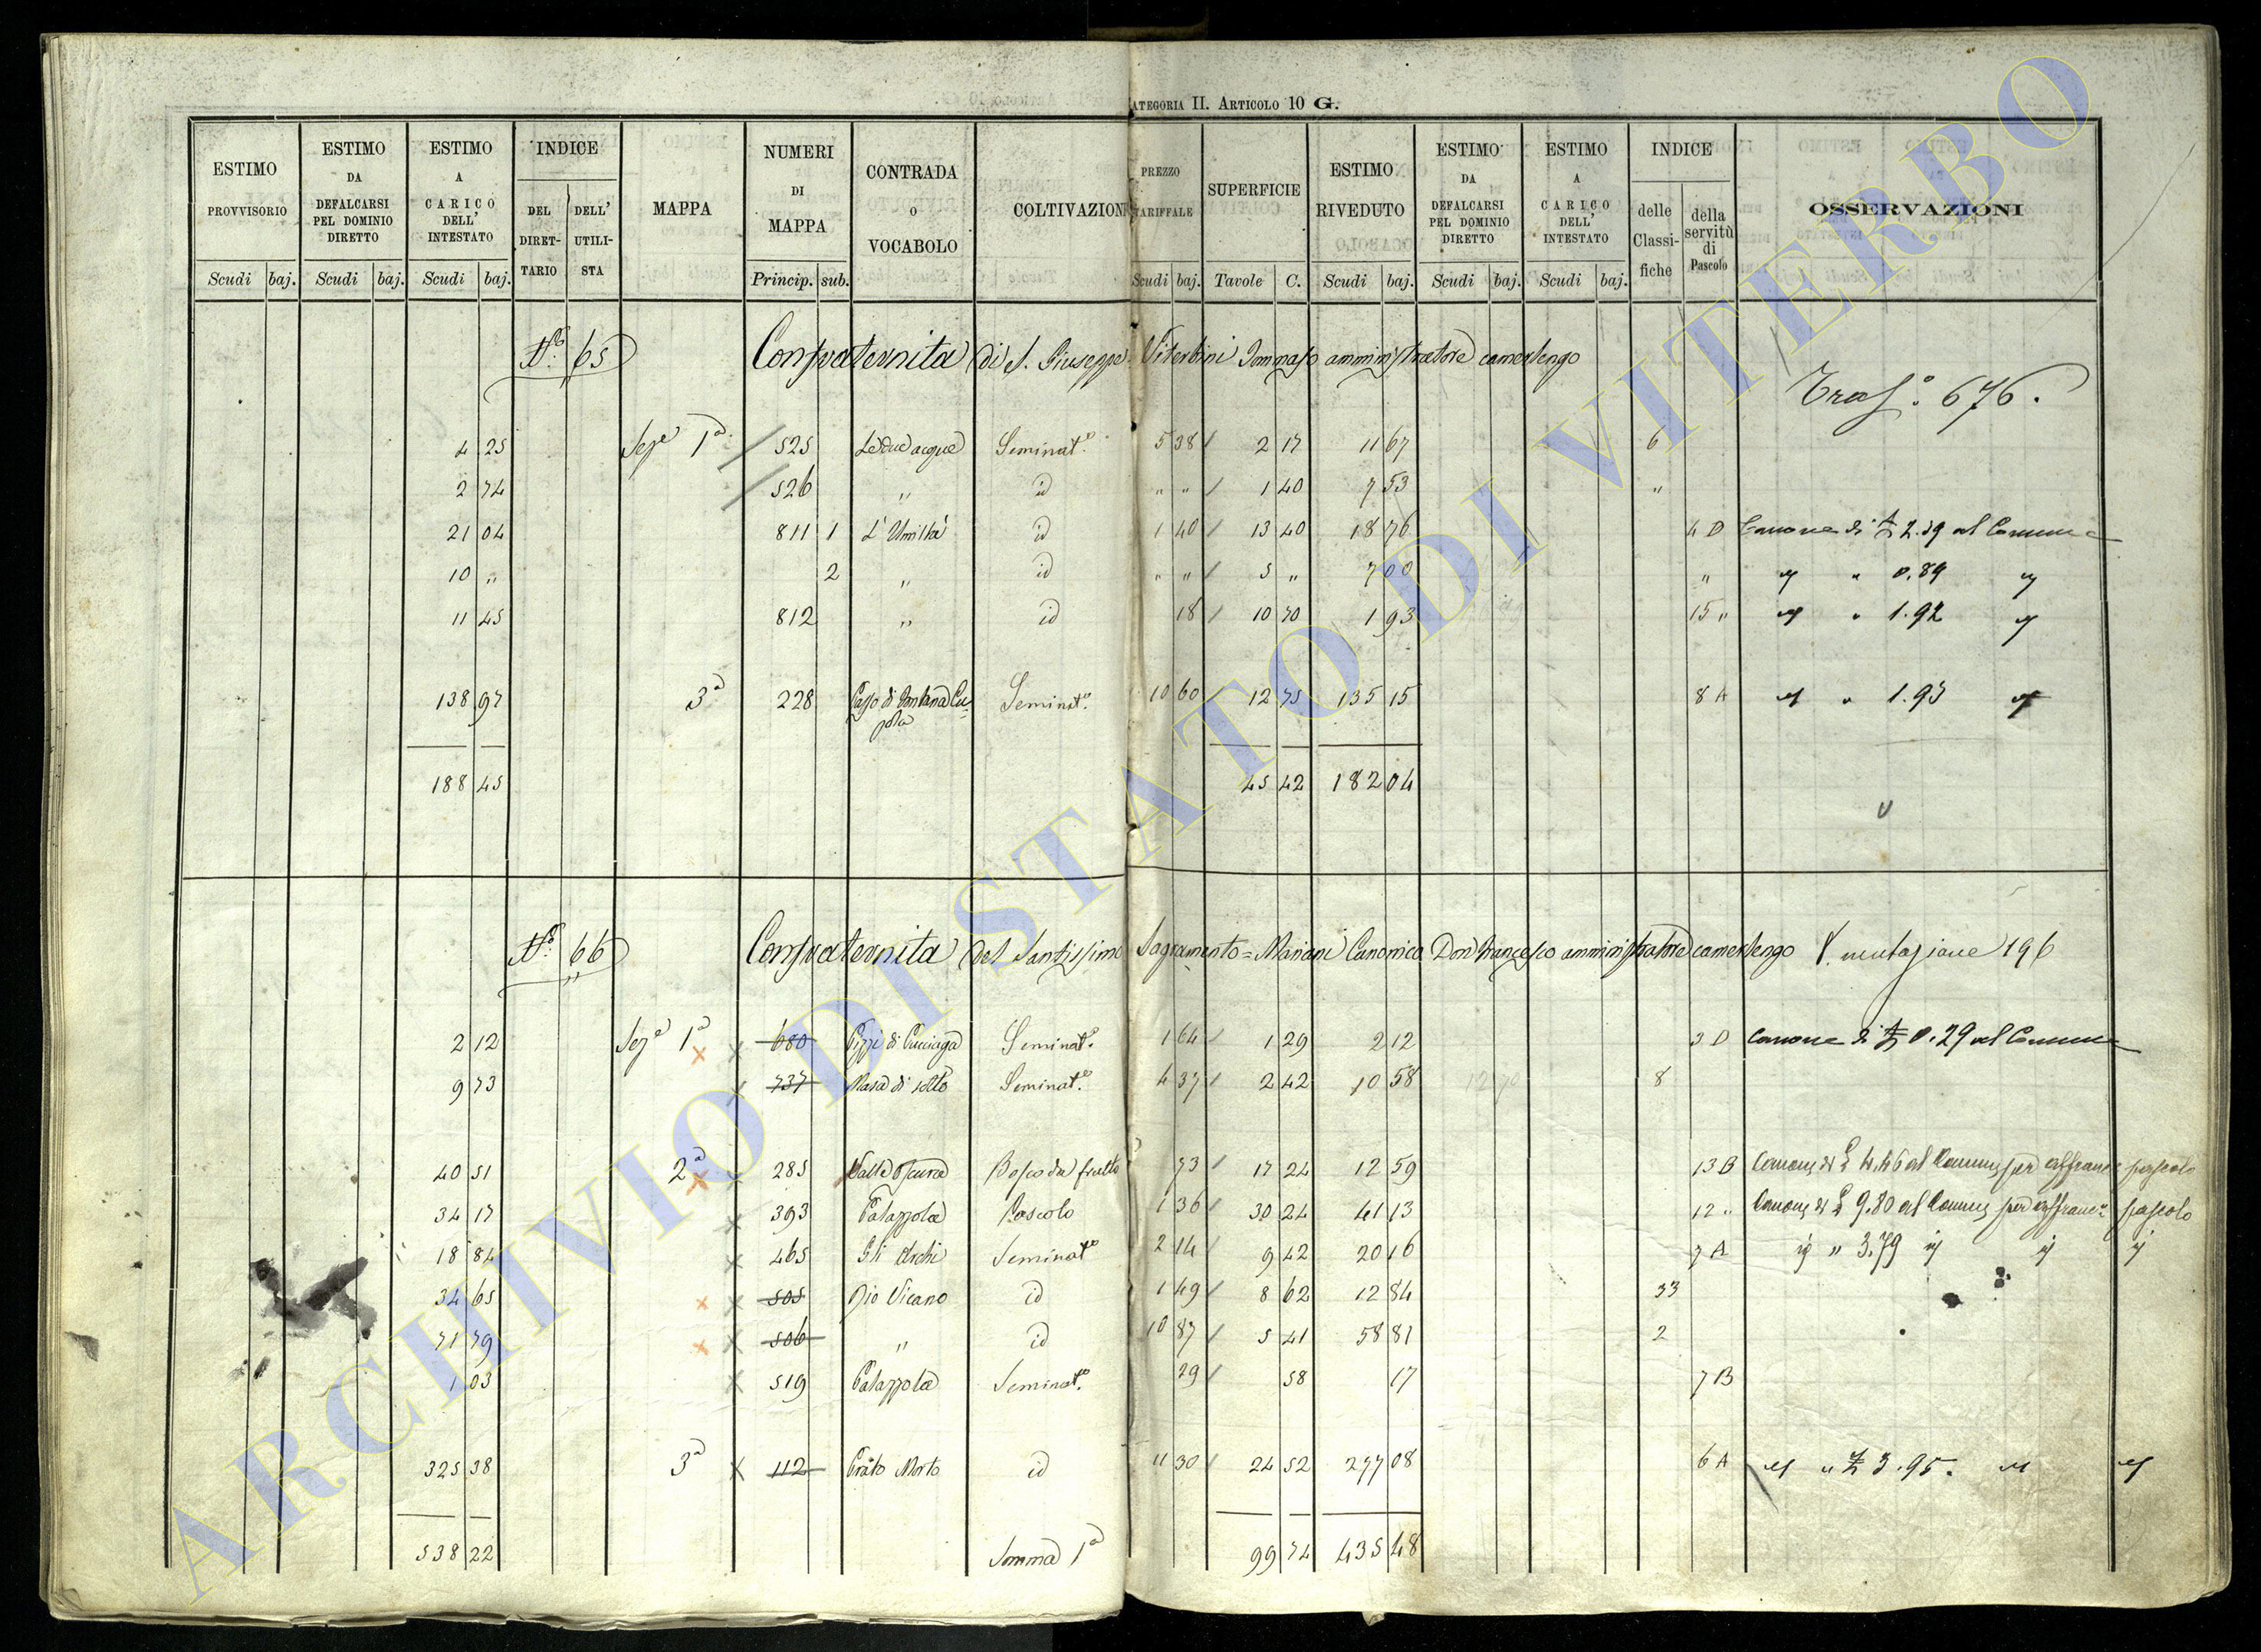 ATEGORIA II. ARTICOLO 10 G.
ESTIMO PROVVISORIO | ESTIMO DA DEFALCARSI PEL DOMINIO DIRETTO | ESTIMO A CARICO DELL' INTESTATO | INDICE DEL DIRETTARIO | DELL' UTILISTA | MAPPA | NUMERI DI MAPPA | CONTRADA O VOCABOLO | COLTIVAZION | PREZZO TARIFFALE | SUPERFICIE | ESTIMO RIVEDUTO | ESTIMO DA DEFALCARSI PEL DOMINIO DIRETTO | ESTIMO A CARICO DELL' INTESTATO | INDICE delle Classifiche | della servitù di Pascolo | OSSERVAZIONI
Scudi | baj. | Scudi | baj. | Scudi | baj. | Princip. | sub. | Scudi | baj. | Tavole | C. | Scudi | baj. | Scudi | baj. | Scudi | baj.
N.o 65 Confraternita di S. Giuseppe. Viterbini Tommaso amministratore camerlengo
Tras.o 676.
4 25 Seze 1a 525 Le due acque Seminat.o 5 38 2 17 11 67 6
2 74 526 " id " " 1 40 7 53 "
21 04 811 1 L'Umiltà id 1 40 13 40 18 76 4 D Canone di £ 2.39 al Comune
10 " 2 " id " " 5 " 7 00 " " " 0.89 "
11 45 812 " id 18 10 70 1 93 15 " " " 1.92 "
138 97 3a 228 Passo di Fontana Cupola Seminat.o 10 60 12 75 135 15 8 A " " 1.93 "
188 45 45 42 182 04
N.o 66 Confraternita del Santissimo Sagramento = Mariani Canonico Don Francesco amministratore camerlengo V. mutazione 196
2 12 Seze 1a 680 Pizzi di Cucciaga Seminat.o 1 64 1 29 2 12 3 D Canone di £ 0.29 al Comune
9 73 737 Nasa di sotto Seminat.o 4 37 2 42 10 58 12 70 8
40 51 2a 285 Valle Oscura Bosco da frutto 73 17 24 12 59 13 B Canone di £ 4.46 al Comune per affranc pascolo
34 17 393 Palazzola Pascolo 1 36 30 24 41 13 12 " Canone di £ 9.80 al Comune per affranc.e pascolo
18 84 465 Gli Archi Seminat.o 2 14 9 42 20 16 7 A id " 3.79 id id id
34 65 505 Rio Vicano id 1 49 8 62 12 84 33
71 79 506 " id 10 87 5 41 58 81 2
1 03 519 Palazzola Seminat.o 29 58 17 7 B
325 38 3a 112 Prato Morto id 11 30 24 52 277 08 6 A " " £ 3.95. " "
538 22 Somma 1a 99 74 435 48
ARCHIVIO DI STATO DI VITERBO